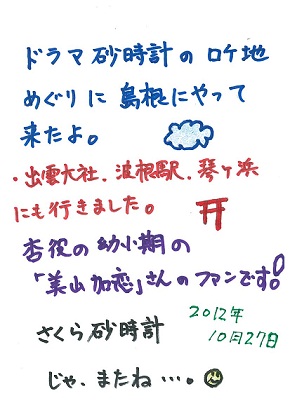 ドラマ砂時計のロケ地
めぐりに島根にやって
来たよ。
・出雲大社、波根駅、琴ヶ浜
にも行きました。
杏役の幼小期の
「美山加恋」さんのファンです!
さくら砂時計
2012年
10月27日
じゃ、またね…。